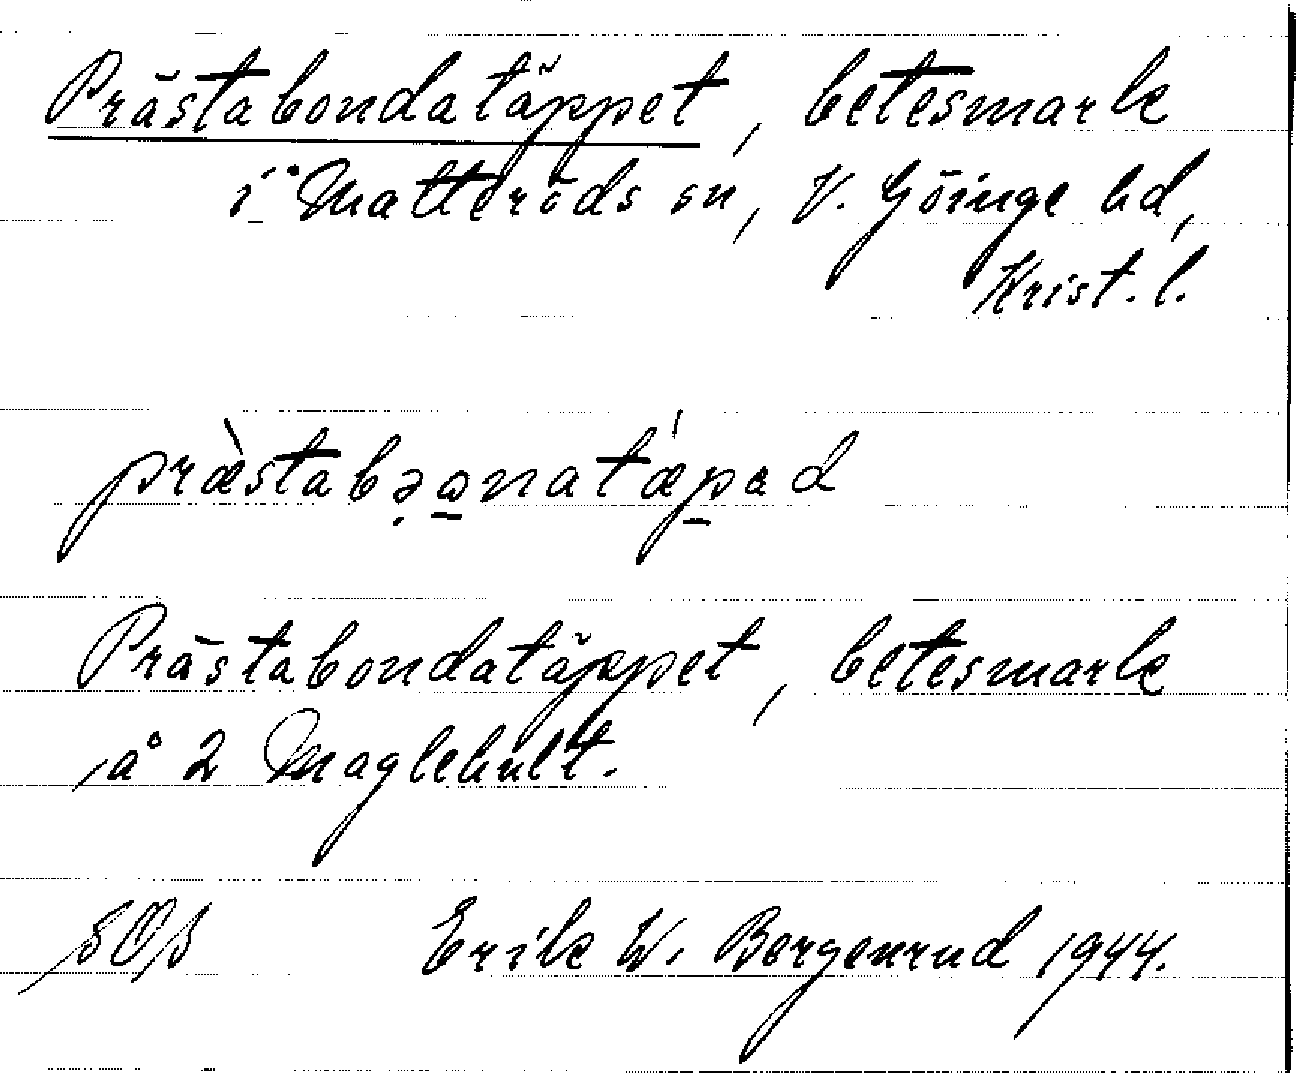 Prästabondatäppet, betesmark
i Matteröds sn, V. Göinge hd,
Krist. l.
præ̀stabə̣ɷ̱natǽp̱ad
Prästabondatäppet, betesmark
å 2 Maglehult.
SOS Erik W. Bergenrud 1944.